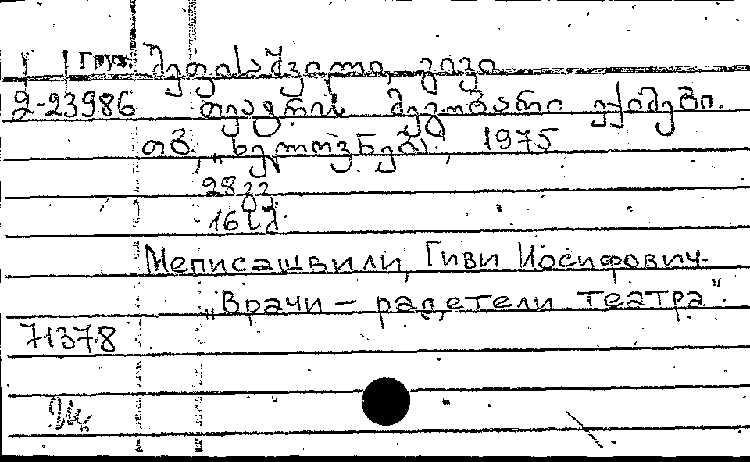 Груз. მეფისაშვილი, გივი
2-23986 თეატრის მეგობარი ექიმები.
თბ., „ხელოვნება", 1975
28 გვ
16 სმ.
Меписашвили, Гиви Иосифович.
„Врачи — радетели театра".
71378